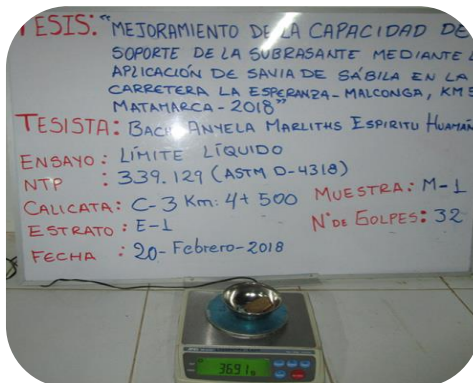 TESIS: "MEJORAMIENTO DE LA CAPACIDAD DE
SOPORTE DE LA SUBRASANTE MEDIANTE L
APLICACIÓN DE SAVIA DE SÁBILA EN LA
CARRETERA LA ESPERANZA-MALCONGA, KM 5
MATAMARCA - 2018"
TESISTA: BACH. ANYELA MARLITHS ESPIRITU HUAMÁN
ENSAYO: LÍMITE LÍQUIDO
NTP : 339.129 (ASTM D-4318)
CALICATA: C-3 Km: 4+500 MUESTRA: M-1
ESTRATO: E-1 N° DE GOLPES: 32
FECHA : 20-Febrero-2018
36.91g